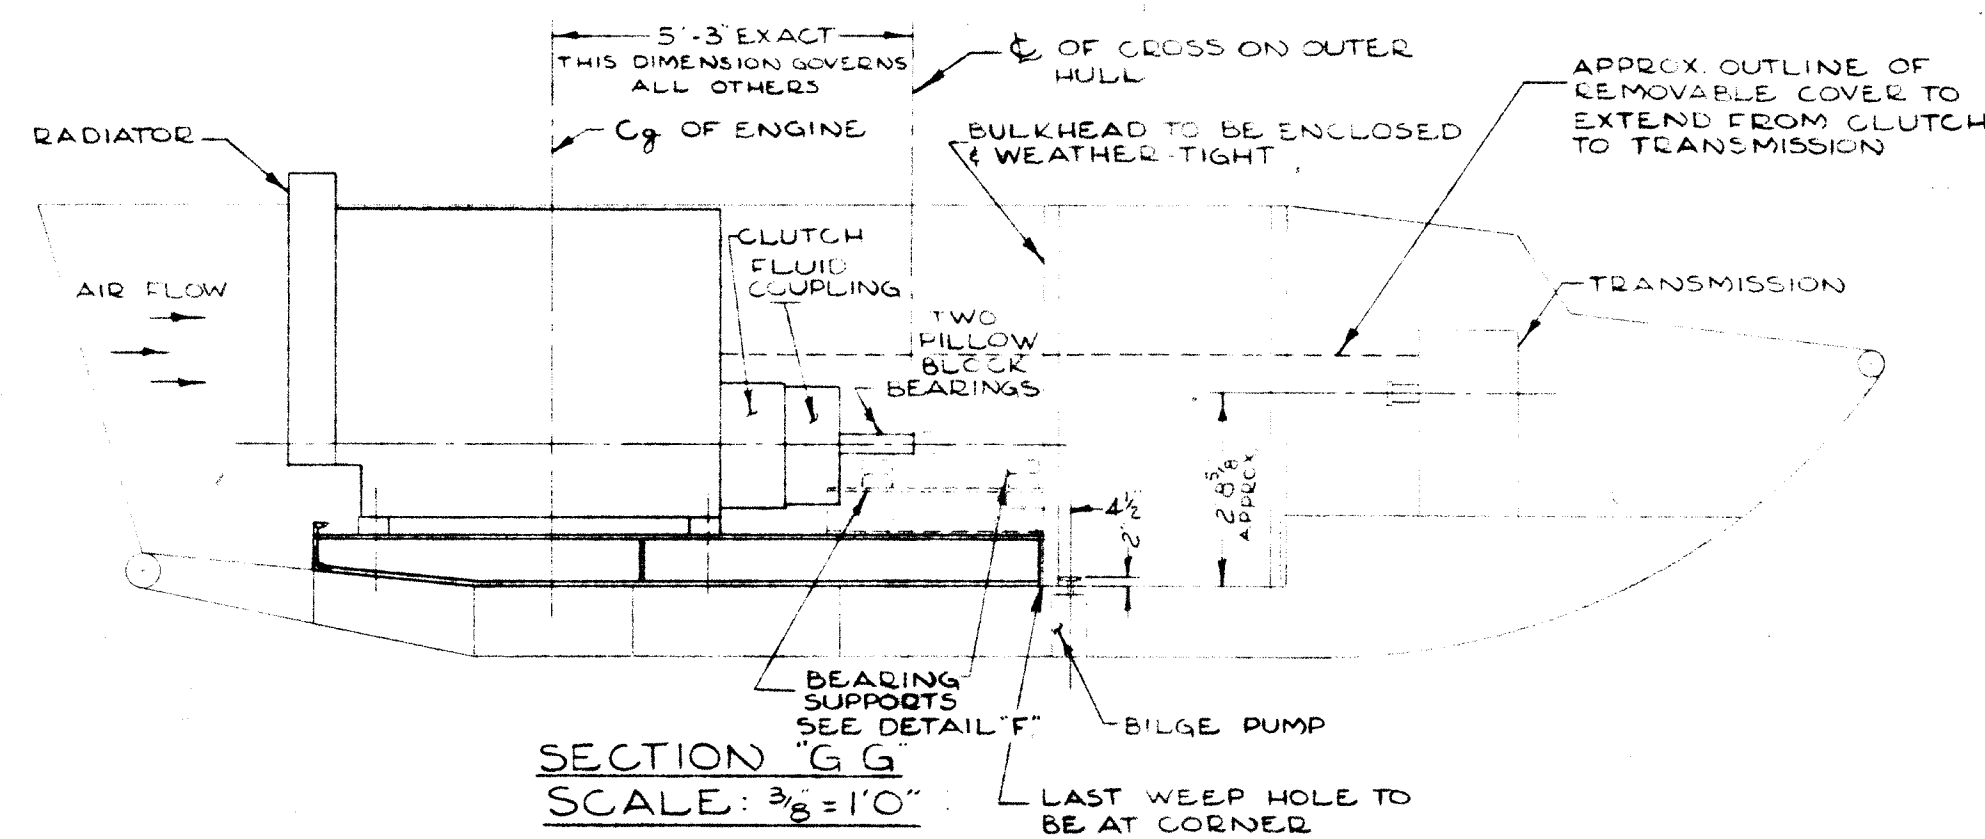 5'-3" EXACT
THIS DIMENSION GOVERNS
ALL OTHERS
℄ OF CROSS ON OUTER
HULL
APPROX. OUTLINE OF
REMOVABLE COVER TO
EXTEND FROM CLUTCH
TO TRANSMISSION
RADIATOR
Cg OF ENGINE
BULKHEAD TO BE ENCLOSED
& WEATHER-TIGHT
AIR FLOW
CLUTCH
FLUID
COUPLING
TWO
PILLOW
BLOCK
BEARINGS
TRANSMISSION
2'8 5/8
APPROX
4 1/2
2"
BEARING
SUPPORTS
SEE DETAIL "F"
BILGE PUMP
SECTION "G G"
SCALE: 3/8" = 1'0"
LAST WEEP HOLE TO
BE AT CORNER